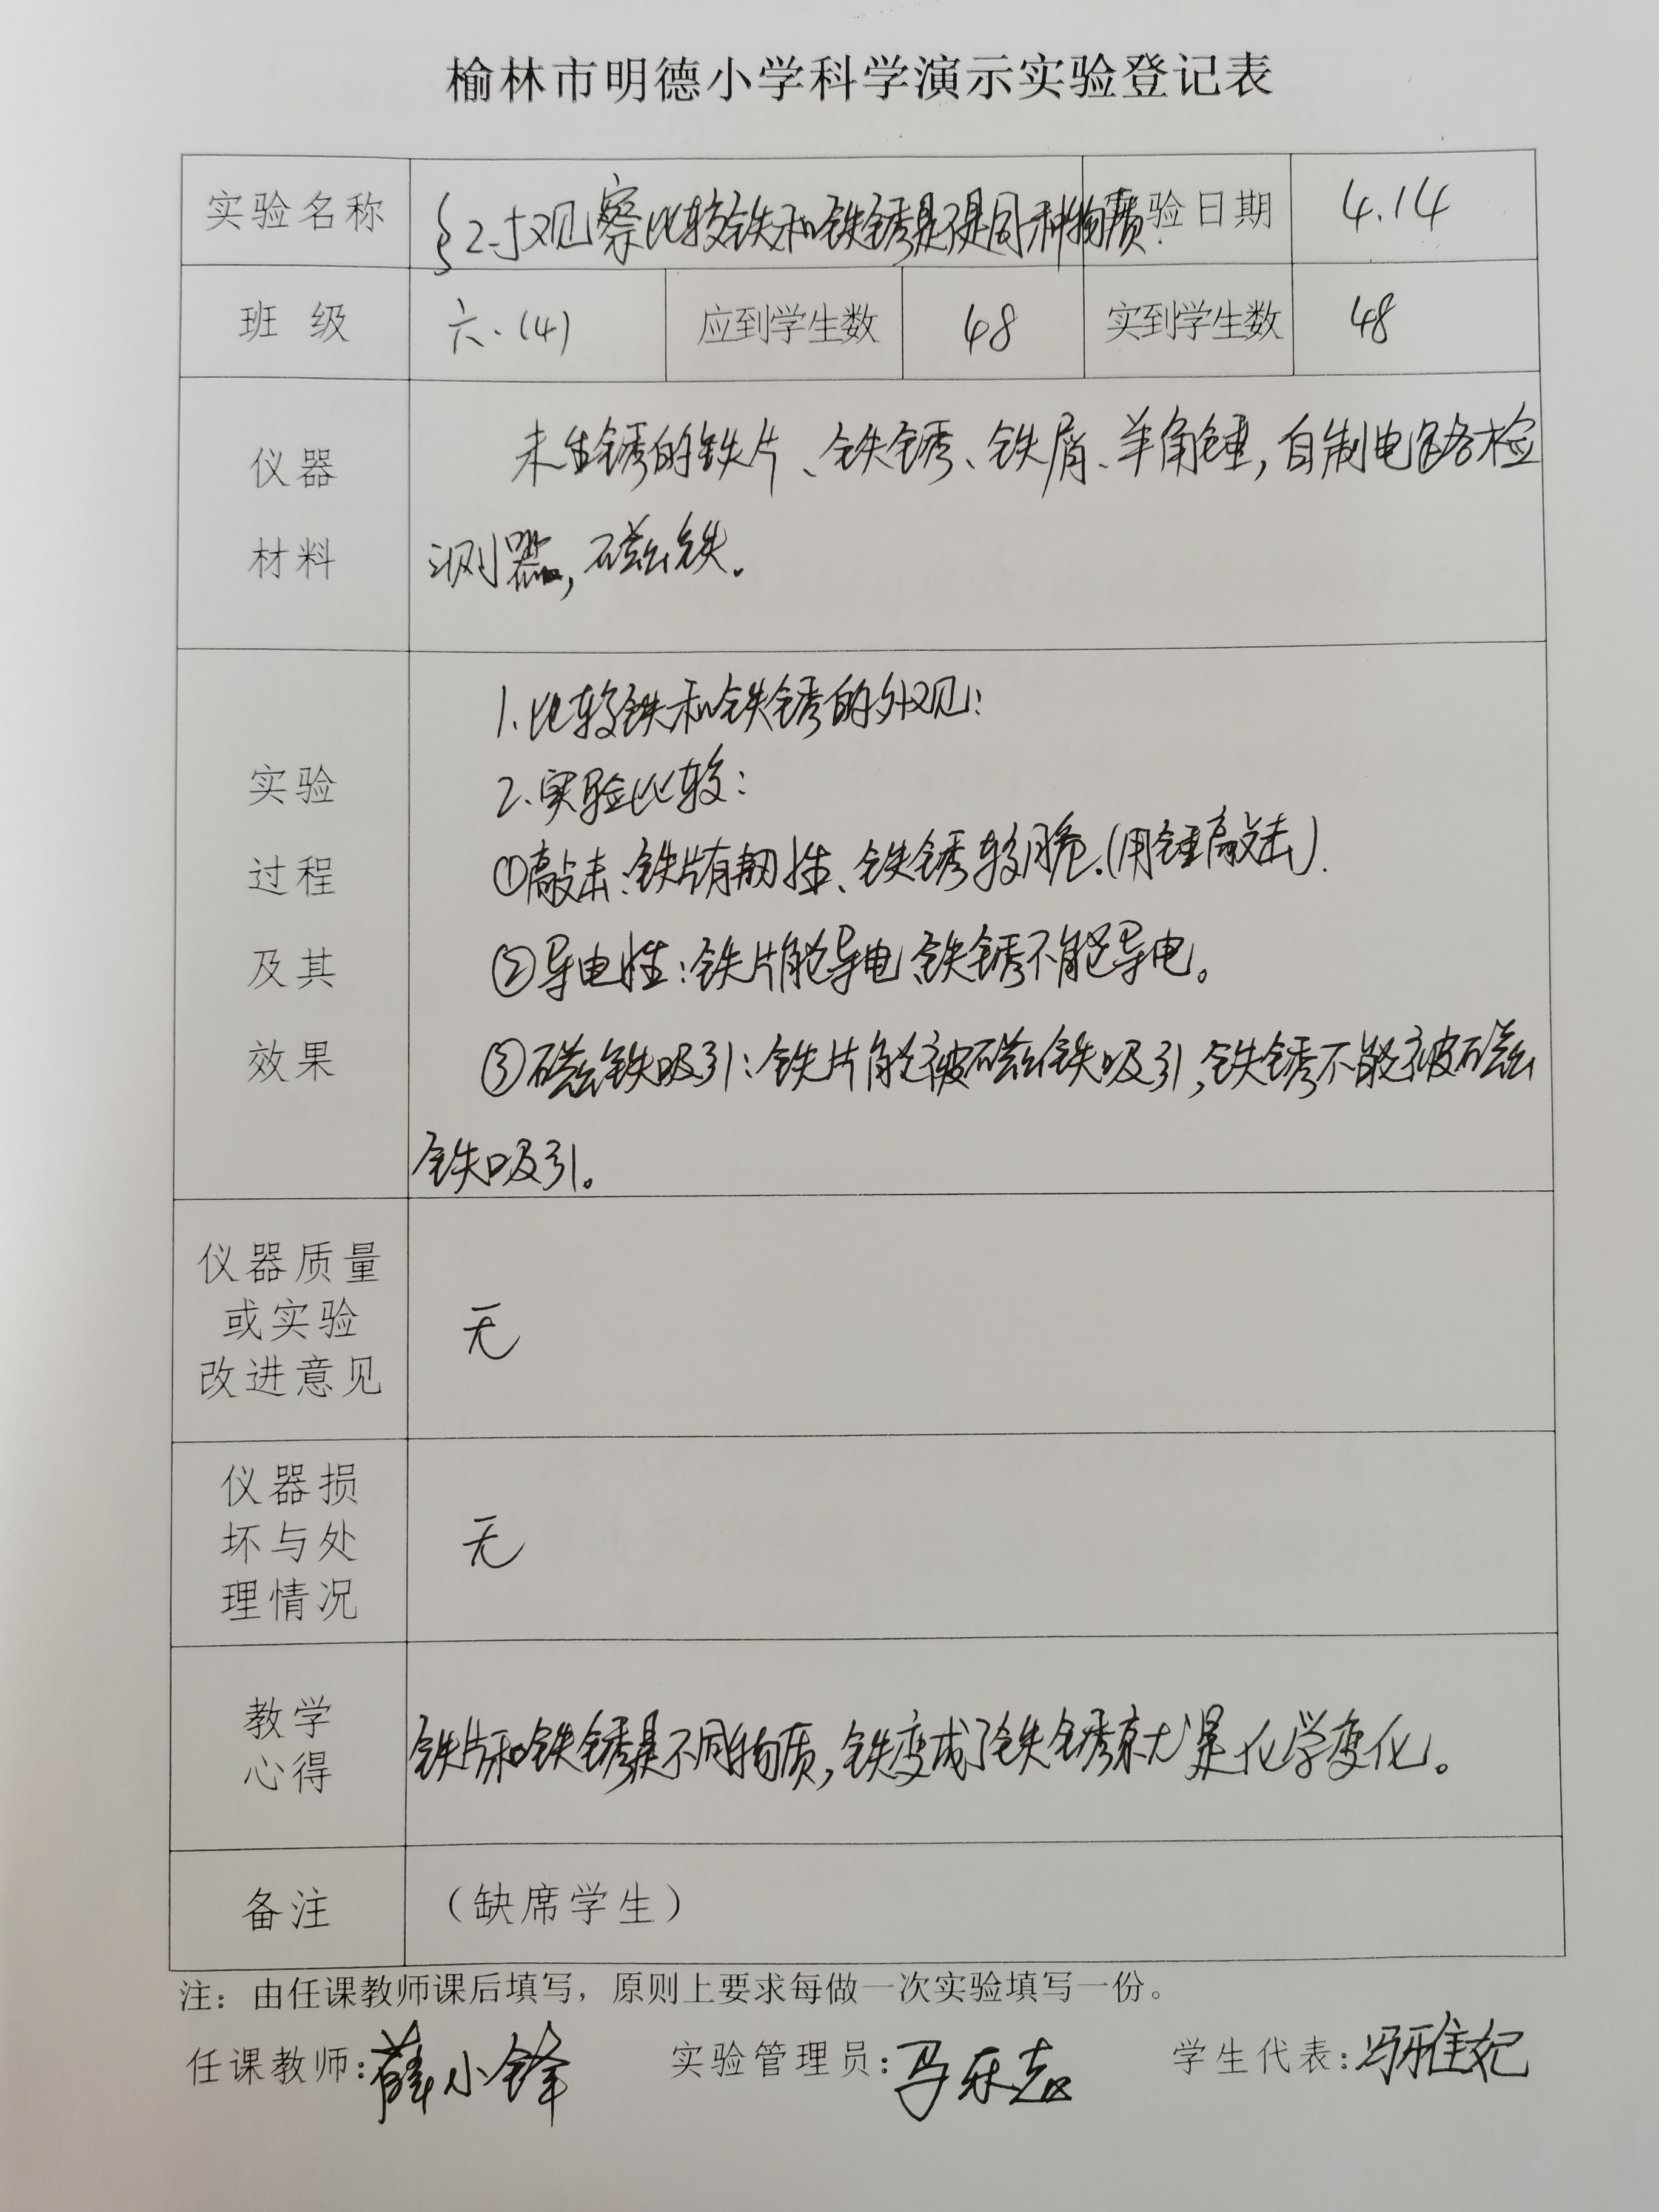 榆林市明德小学科学演示实验登记表
实验名称 §2.5观察比较铁和铁锈是不是同种物质. 实验日期 4.14
班 级 六.(4) 应到学生数 48 实到学生数 48
仪器
材料
未生锈的铁片、铁锈、铁屑、羊角锤,自制电路检
测器,磁铁。
实验
过程
及其
效果
1.比较铁和铁锈的外观:
2.实验比较:
①敲击:铁片有韧性、铁锈较脆.(用锤敲击).
②导电性:铁片能导电、铁锈不能导电。
③磁铁吸引:铁片能被磁铁吸引,铁锈不能被磁
铁吸引。
仪器质量
或实验
改进意见
无
仪器损
坏与处
理情况
无
教学
心得
铁片和铁锈是不同物质,铁变成了铁锈就是化学变化。
备注 (缺席学生)
注:由任课教师课后填写,原则上要求每做一次实验填写一份。
任课教师:薛小锋 实验管理员:马 学生代表:冯雅妃